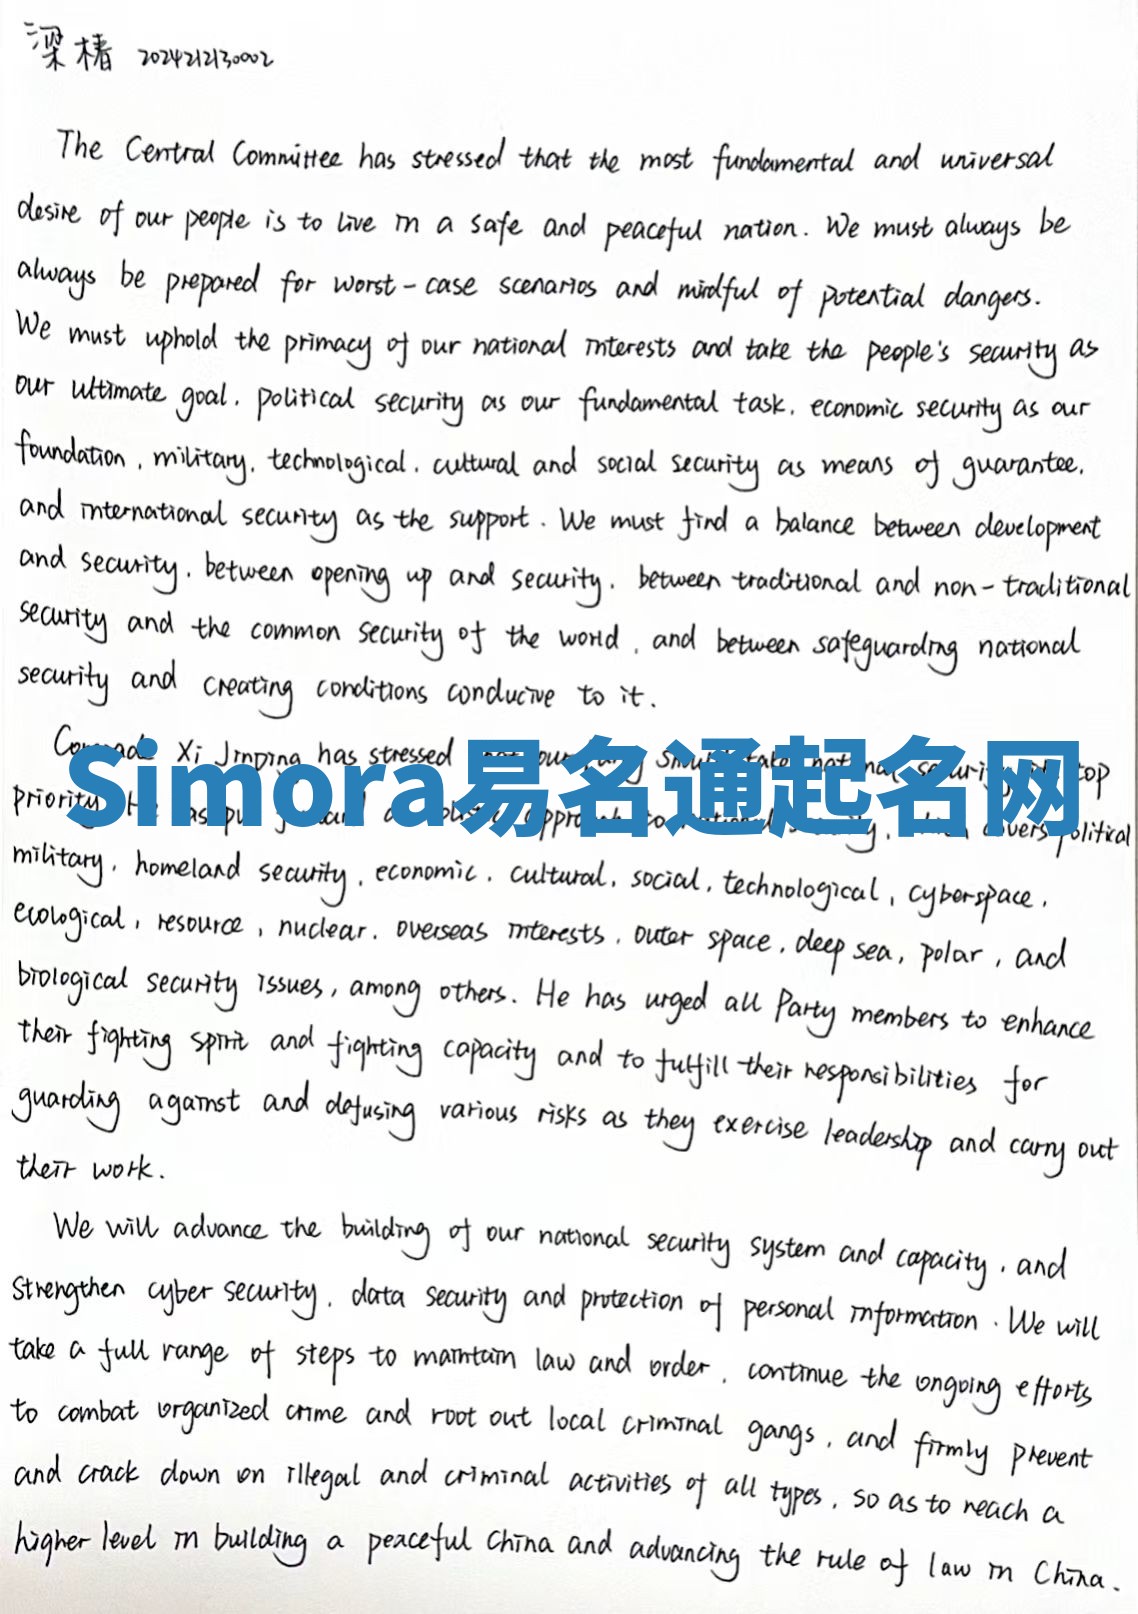 梁楮 2024212130002
The Central Committee has stressed that the most fundamental and universal
desire of our people is to live in a safe and peaceful nation. We must always be
always be prepared for worst-case scenarios and mindful of potential dangers.
We must uphold the primacy of our national interests and take the people's security as
our ultimate goal, political security as our fundamental task, economic security as our
foundation, military, technological, cultural and social security as means of guarantee,
and international security as the support. We must find a balance between development
and security, between opening up and security, between traditional and non-traditional
security and the common security of the world, and between safeguarding national
security and creating conditions conducive to it.
Xi Jinping has stressed top
priority political
Simora易名通起名网
military, homeland security, economic, cultural, social, technological, cyberspace,
ecological, resource, nuclear, overseas interests, outer space, deep sea, polar, and
biological security issues, among others. He has urged all Party members to enhance
their fighting spirit and fighting capacity and to fulfill their responsibilities for
guarding against and defusing various risks as they exercise leadership and carry out
their work.
We will advance the building of our national security system and capacity, and
strengthen cyber security, data security and protection of personal information. We will
take a full range of steps to maintain law and order, continue the ongoing efforts
to combat organized crime and root out local criminal gangs, and firmly prevent
and crack down on illegal and criminal activities of all types, so as to reach a
higher level in building a peaceful China and advancing the rule of law in China.